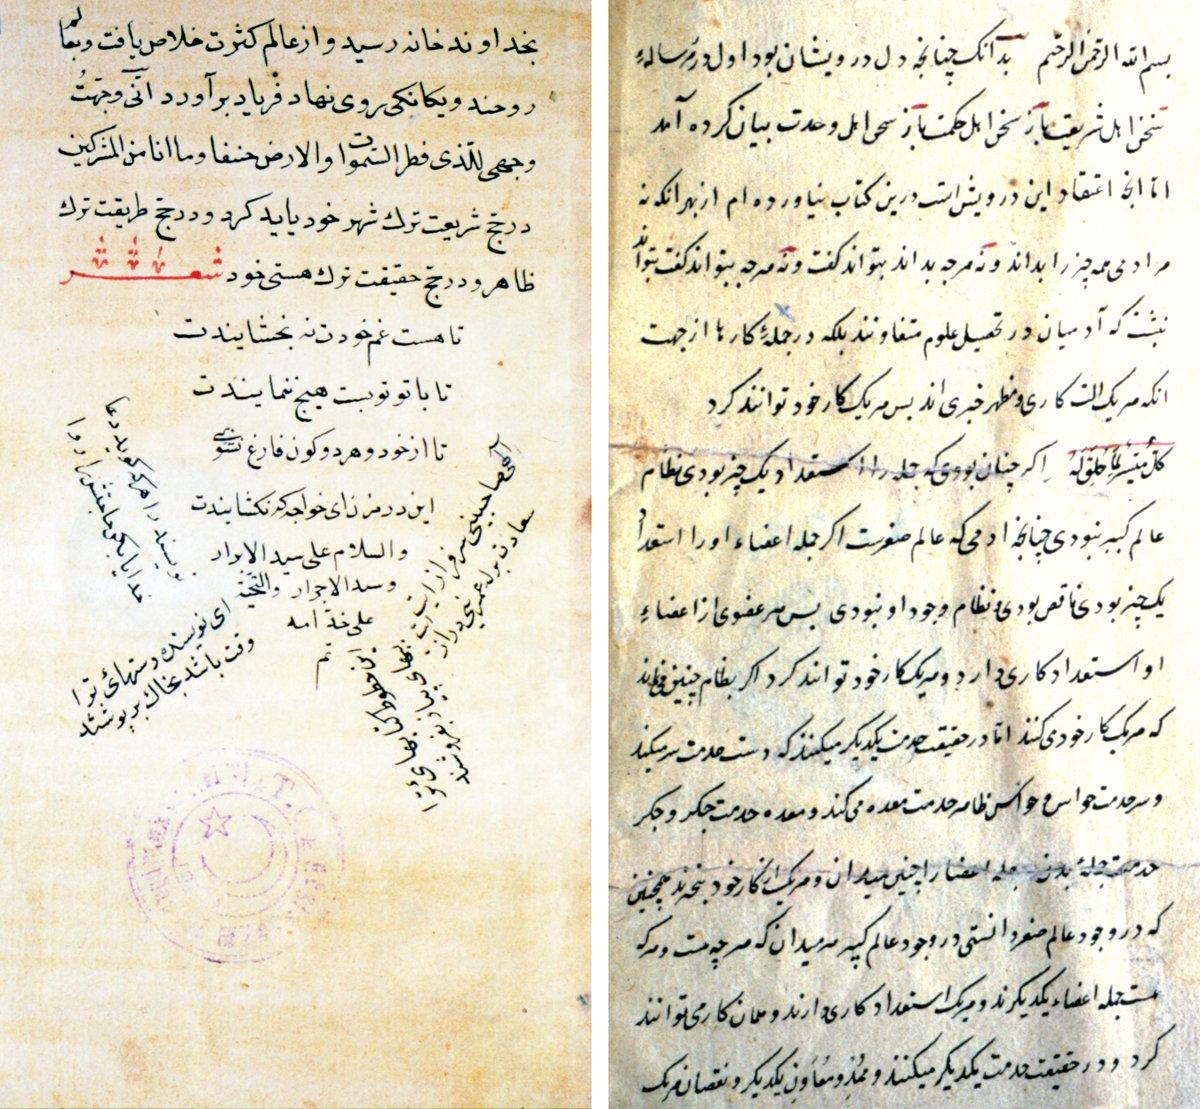 بسم الله الرحمن الرحیم بدآنک چنانچه دل درویشان بود اول در رساله
سخن اهل شریعت باز سخن اهل حکمت باز سخن اهل وحدت بیان کرده آمد
اما انچه اعتقاد این درویش است درین کتاب نیاورده ام از بهر انکه نه
هر ادمی همه چیز را بداند ونه هرچه بداند بتواند کفت ونه هرچه بتواند کفت بتواند
نبشت که آدمیان در تحصیل علوم متفاوتند بلکه در جمله کارها از جهت
انکه هر یک الت کاری و مظهر خبری اند پس هر یک کار خود توانند کرد
کل میسر لما خلق له اکر چنان بودی که جمله را استعداد یک چیز بودی نظام
عالم کبیر نبودی چنانچه ادمی که عالم صغیرست اکر جمله اعضاء او را استعداد
یک چیز بودی ناقص بودی و نظام وجود او نبودی پس هر عضوی از اعضاء
او استعداد کاری دارد و هر یک کار خود تواند کرد اکر بنظام چنین می‌داند
که هر یک کار خود می کنند اما در حقیقت خدمت یکدیکر میکنند که دست خدمت سر میکند
و سر خدمت حواس و حواس ظاهر خدمت معده می کند و معده خدمت جکر و جکر
خدمت جمله بدن جمله اعضا را چنین میدان و هر یک از کار خود همچنین
که در وجود عالم صغیر دانستی در وجود عالم کبیر هم میدان که هرچه هست و هر که
هست جمله اعضاء یکدیکرند و هر یک استعداد کاری دارند و همان کار می توانند
کرد و در حقیقت خدمت یکدیکر میکنند و ممد و معاون یکدیکر و نقصان هر یک
بخداوند خانه رسید و از عالم کثرت خلاص یافت و بعالم
روحند ویکانکی روی نهاد فریاد برآورد انی وجهت
وجهی للذی فطر السموات والارض حنیفا وما انا من المشرکین
در حج شریعت ترک شهر خود باید کرد و در حج طریقت ترک
ظاهر و در حج حقیقت ترک هستی خود شعر
تا هست غم خودت نه بخشایندت
تا با تو توبست هیچ ننمایندت
تا از خود و هر دو کون فارغ نشوی
این در مزن ای خواجه که نکشایندت
والسلام علی سید الابرار
وسند الاحرار والتحیة
علی خدامه
تم
نویسنده را هر که کوید دعا
خدایا بکن حاجتش را روا
ای نویسنده دستهای ترا
وقت باشد بخاک بر پوشند
این خطوط کتابهای ترا
ببهای پیاز بفروشند